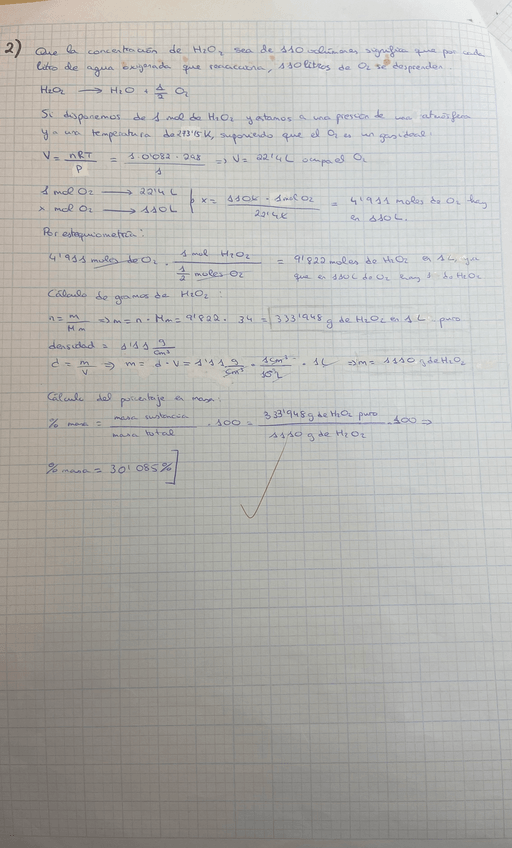 2) Que la concentración de H2O2 sea de 110 volúmenes significa que por cada
litro de agua oxigenada que reacciona, 110 litros de O2 se desprenden.
H2O2 → H2O + 1/2 O2
Si disponemos de 1 mol de H2O2 y estamos a una presión de una atmósfera
y a una temperatura de 273'15 K, suponiendo que el O2 es un gas ideal:
V = nRT / P = 1·0'082·298 / 1 => V = 22'4 L ocupa el O2
1 mol O2 → 22'4 L
x mol O2 → 110 L } x = 110 L · 1 mol O2 / 22'4 L = 4'911 moles de O2 hay en 110 L.
Por estequiometría:
4'911 moles de O2 · 1 mol H2O2 / 1/2 moles O2 = 9'822 moles de H2O2 en 1 L, ya
que en 110 L de O2 hay 1 L de H2O2
Cálculo de gramos de H2O2:
n = m / Mm => m = n · Mm = 9'822 · 34 = 333'948 g de H2O2 en 1 L puro
densidad = 1'11 g/cm³
d = m / V => m = d · V = 1'11 g/cm³ · 1cm³ / 10⁻³L · 1L => m = 1110 g de H2O2
Cálculo del porcentaje en masa:
% masa = masa sustancia / masa total · 100 = 333'948 g de H2O2 puro / 1110 g de H2O2 · 100 =>
% masa = 30'085%